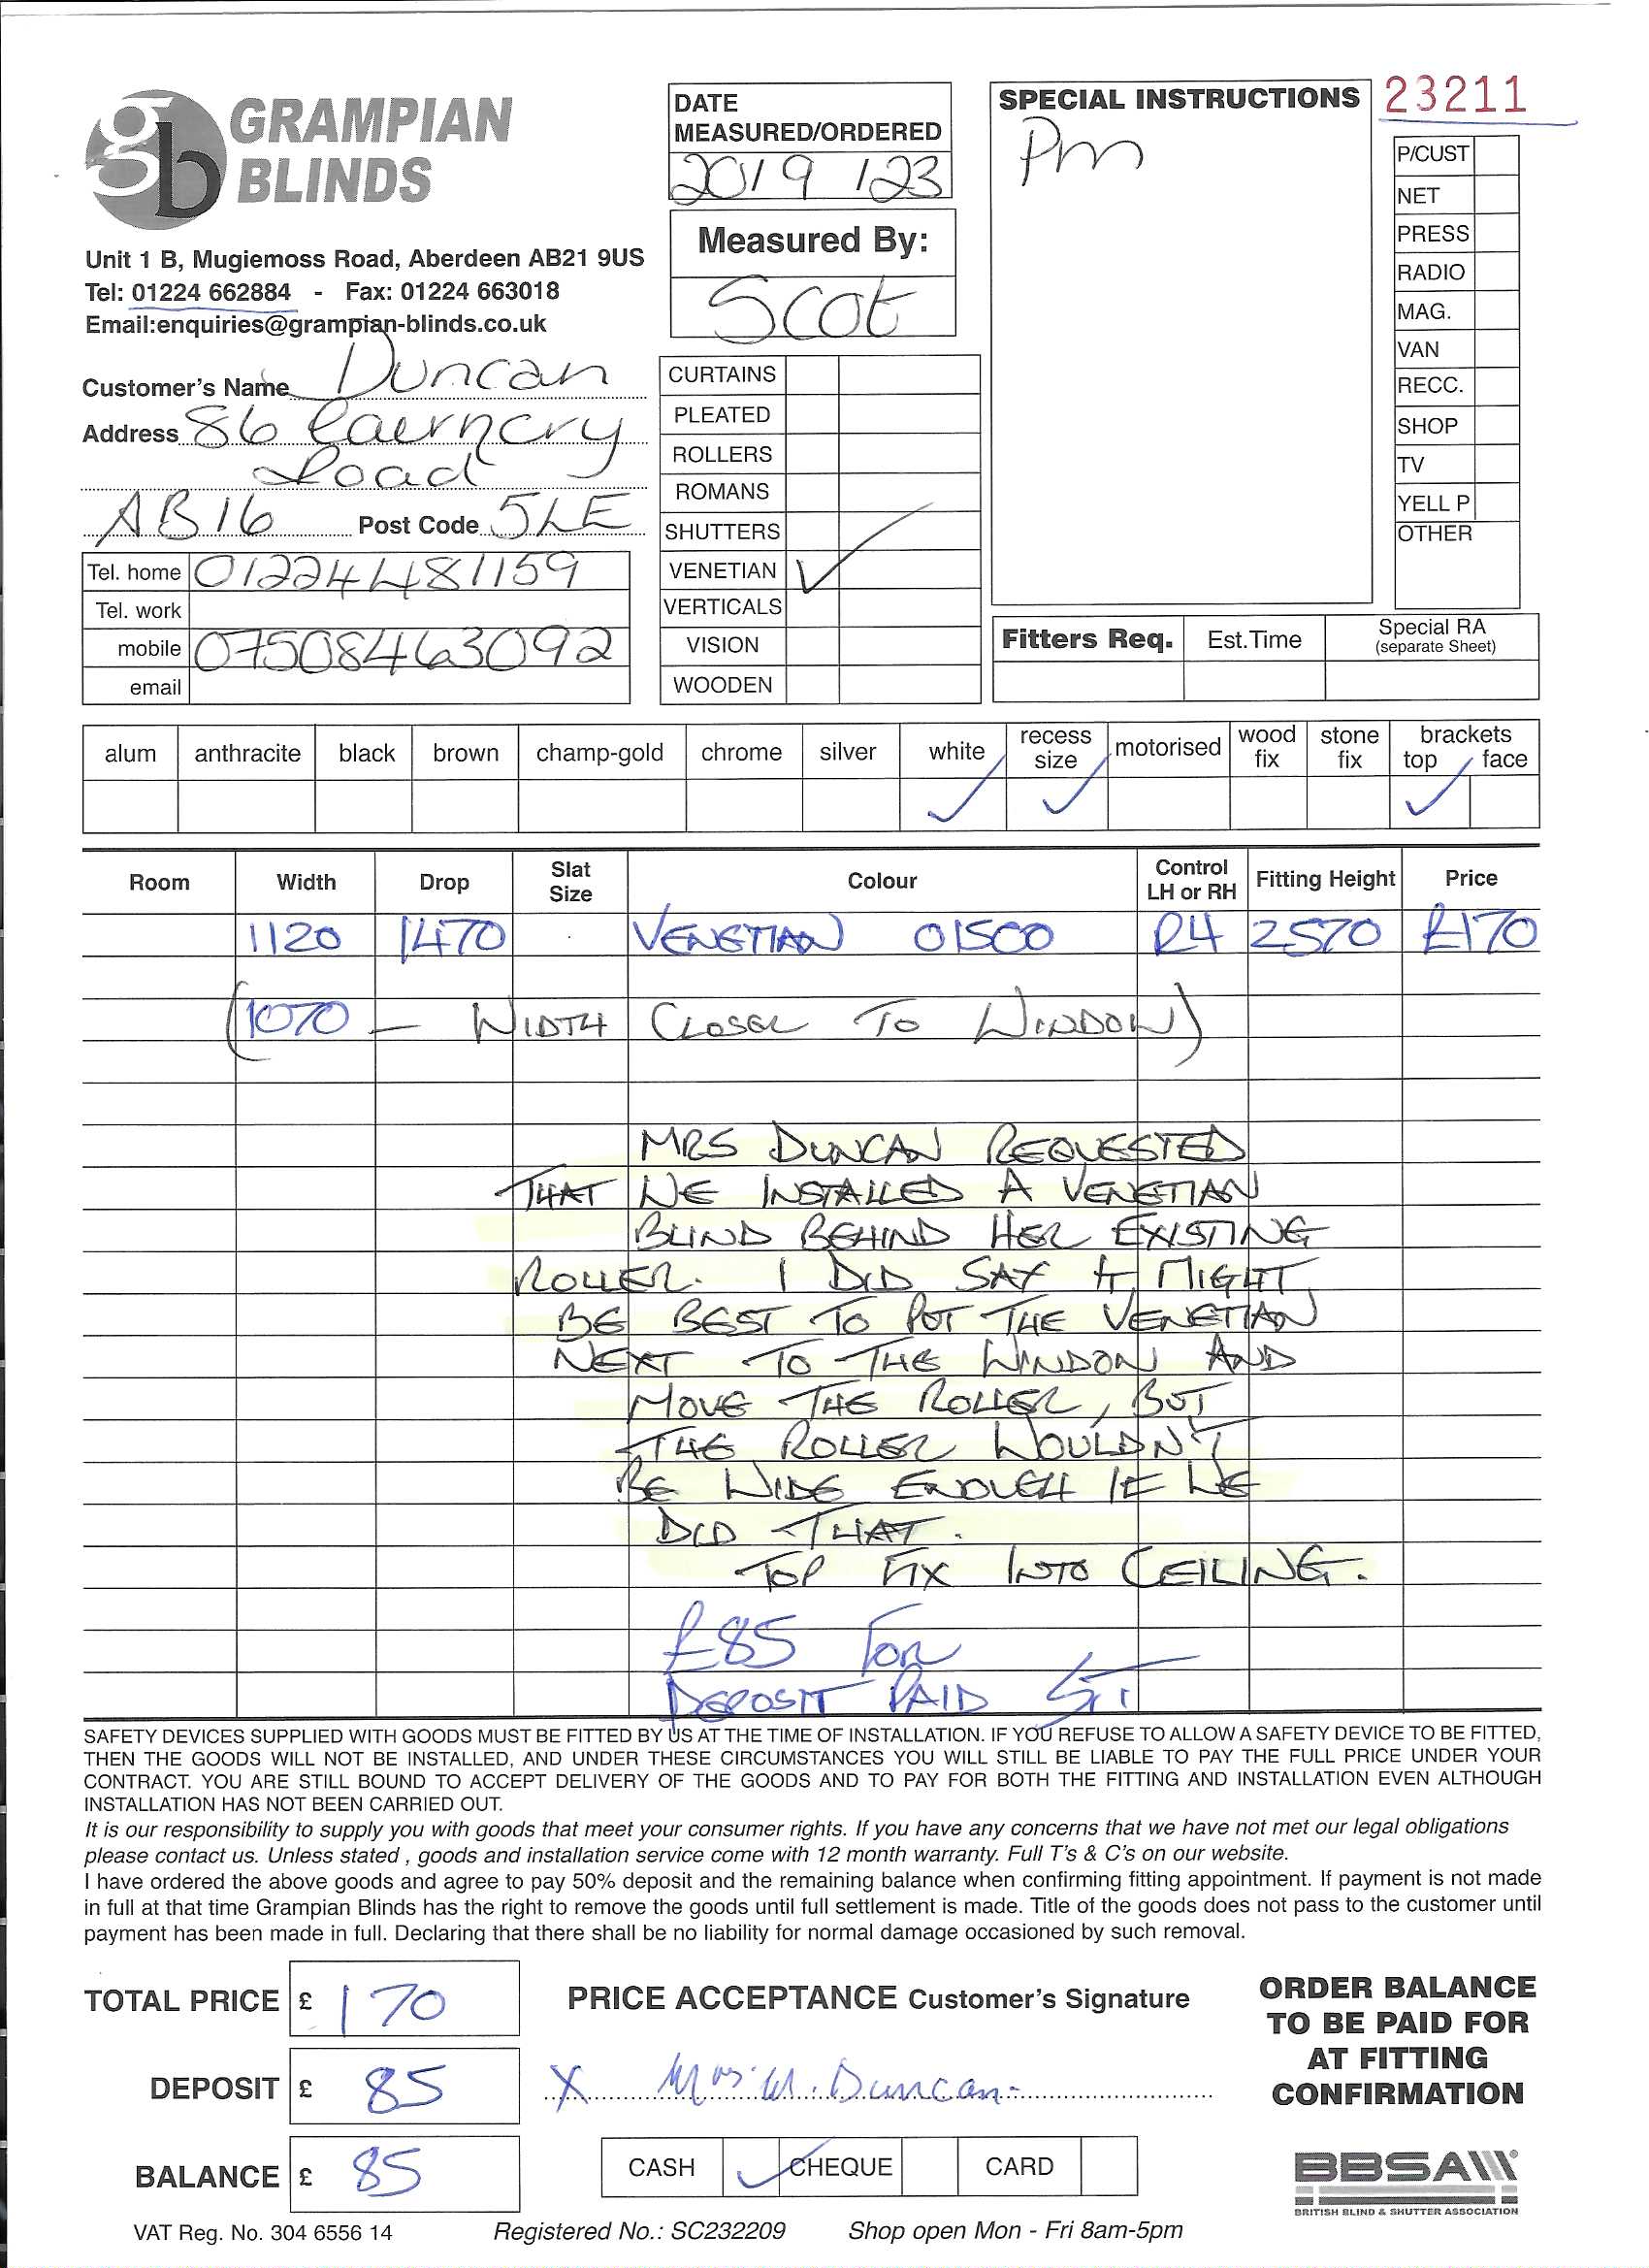 gb GRAMPIAN BLINDS
Unit 1 B, Mugiemoss Road, Aberdeen AB21 9US
Tel: 01224 662884 - Fax: 01224 663018
Email:enquiries@grampian-blinds.co.uk
Customer's Name Duncan
Address 86 Cairncry
Road
AB16 Post Code 5LE
Tel. home 01224481159
Tel. work
mobile 07508463092
email
DATE
MEASURED/ORDERED
20/9/23
Measured By:
Scot
CURTAINS
PLEATED
ROLLERS
ROMANS
SHUTTERS
VENETIAN ✓
VERTICALS
VISION
WOODEN
SPECIAL INSTRUCTIONS
Pm
23211
P/CUST
NET
PRESS
RADIO
MAG.
VAN
RECC.
SHOP
TV
YELL P
OTHER
Fitters Req. Est.Time Special RA
(separate Sheet)
alum anthracite black brown champ-gold chrome silver white recess size motorised wood fix stone fix brackets top face
✓ ✓ ✓
Room Width Drop Slat Size Colour Control LH or RH Fitting Height Price
1120 1470 VENETIAN 01500 R4 2570 £170
(1070 - WIDTH CLOSER TO WINDOW)
MRS DUNCAN REQUESTED
THAT WE INSTALLED A VENETIAN
BLIND BEHIND HER EXISTING
ROLLER. I DID SAY IT MIGHT
BE BEST TO PUT THE VENETIAN
NEXT TO THE WINDOW AND
MOVE THE ROLLER, BUT
THE ROLLER WOULDN'T
BE WIDE ENOUGH IF WE
DID THAT.
TOP FIX INTO CEILING.
£85 FOR
DEPOSIT PAID
SAFETY DEVICES SUPPLIED WITH GOODS MUST BE FITTED BY US AT THE TIME OF INSTALLATION. IF YOU REFUSE TO ALLOW A SAFETY DEVICE TO BE FITTED,
THEN THE GOODS WILL NOT BE INSTALLED, AND UNDER THESE CIRCUMSTANCES YOU WILL STILL BE LIABLE TO PAY THE FULL PRICE UNDER YOUR
CONTRACT. YOU ARE STILL BOUND TO ACCEPT DELIVERY OF THE GOODS AND TO PAY FOR BOTH THE FITTING AND INSTALLATION EVEN ALTHOUGH
INSTALLATION HAS NOT BEEN CARRIED OUT.
It is our responsibility to supply you with goods that meet your consumer rights. If you have any concerns that we have not met our legal obligations
please contact us. Unless stated , goods and installation service come with 12 month warranty. Full T's & C's on our website.
I have ordered the above goods and agree to pay 50% deposit and the remaining balance when confirming fitting appointment. If payment is not made
in full at that time Grampian Blinds has the right to remove the goods until full settlement is made. Title of the goods does not pass to the customer until
payment has been made in full. Declaring that there shall be no liability for normal damage occasioned by such removal.
TOTAL PRICE £ 170
DEPOSIT £ 85
BALANCE £ 85
PRICE ACCEPTANCE Customer's Signature
X Mrs W. Duncan
CASH ✓ CHEQUE CARD
ORDER BALANCE
TO BE PAID FOR
AT FITTING
CONFIRMATION
BBSA
BRITISH BLIND & SHUTTER ASSOCIATION
VAT Reg. No. 304 6556 14 Registered No.: SC232209 Shop open Mon - Fri 8am-5pm